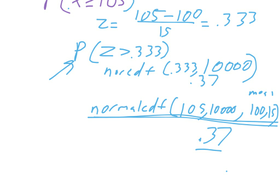 (x ≥ 105)
z = 105-100/15 = .333
P(Z > .333)
norcdf(.333, 10000)
.37
normalcdf(105, 10000, 100, 15)
.37